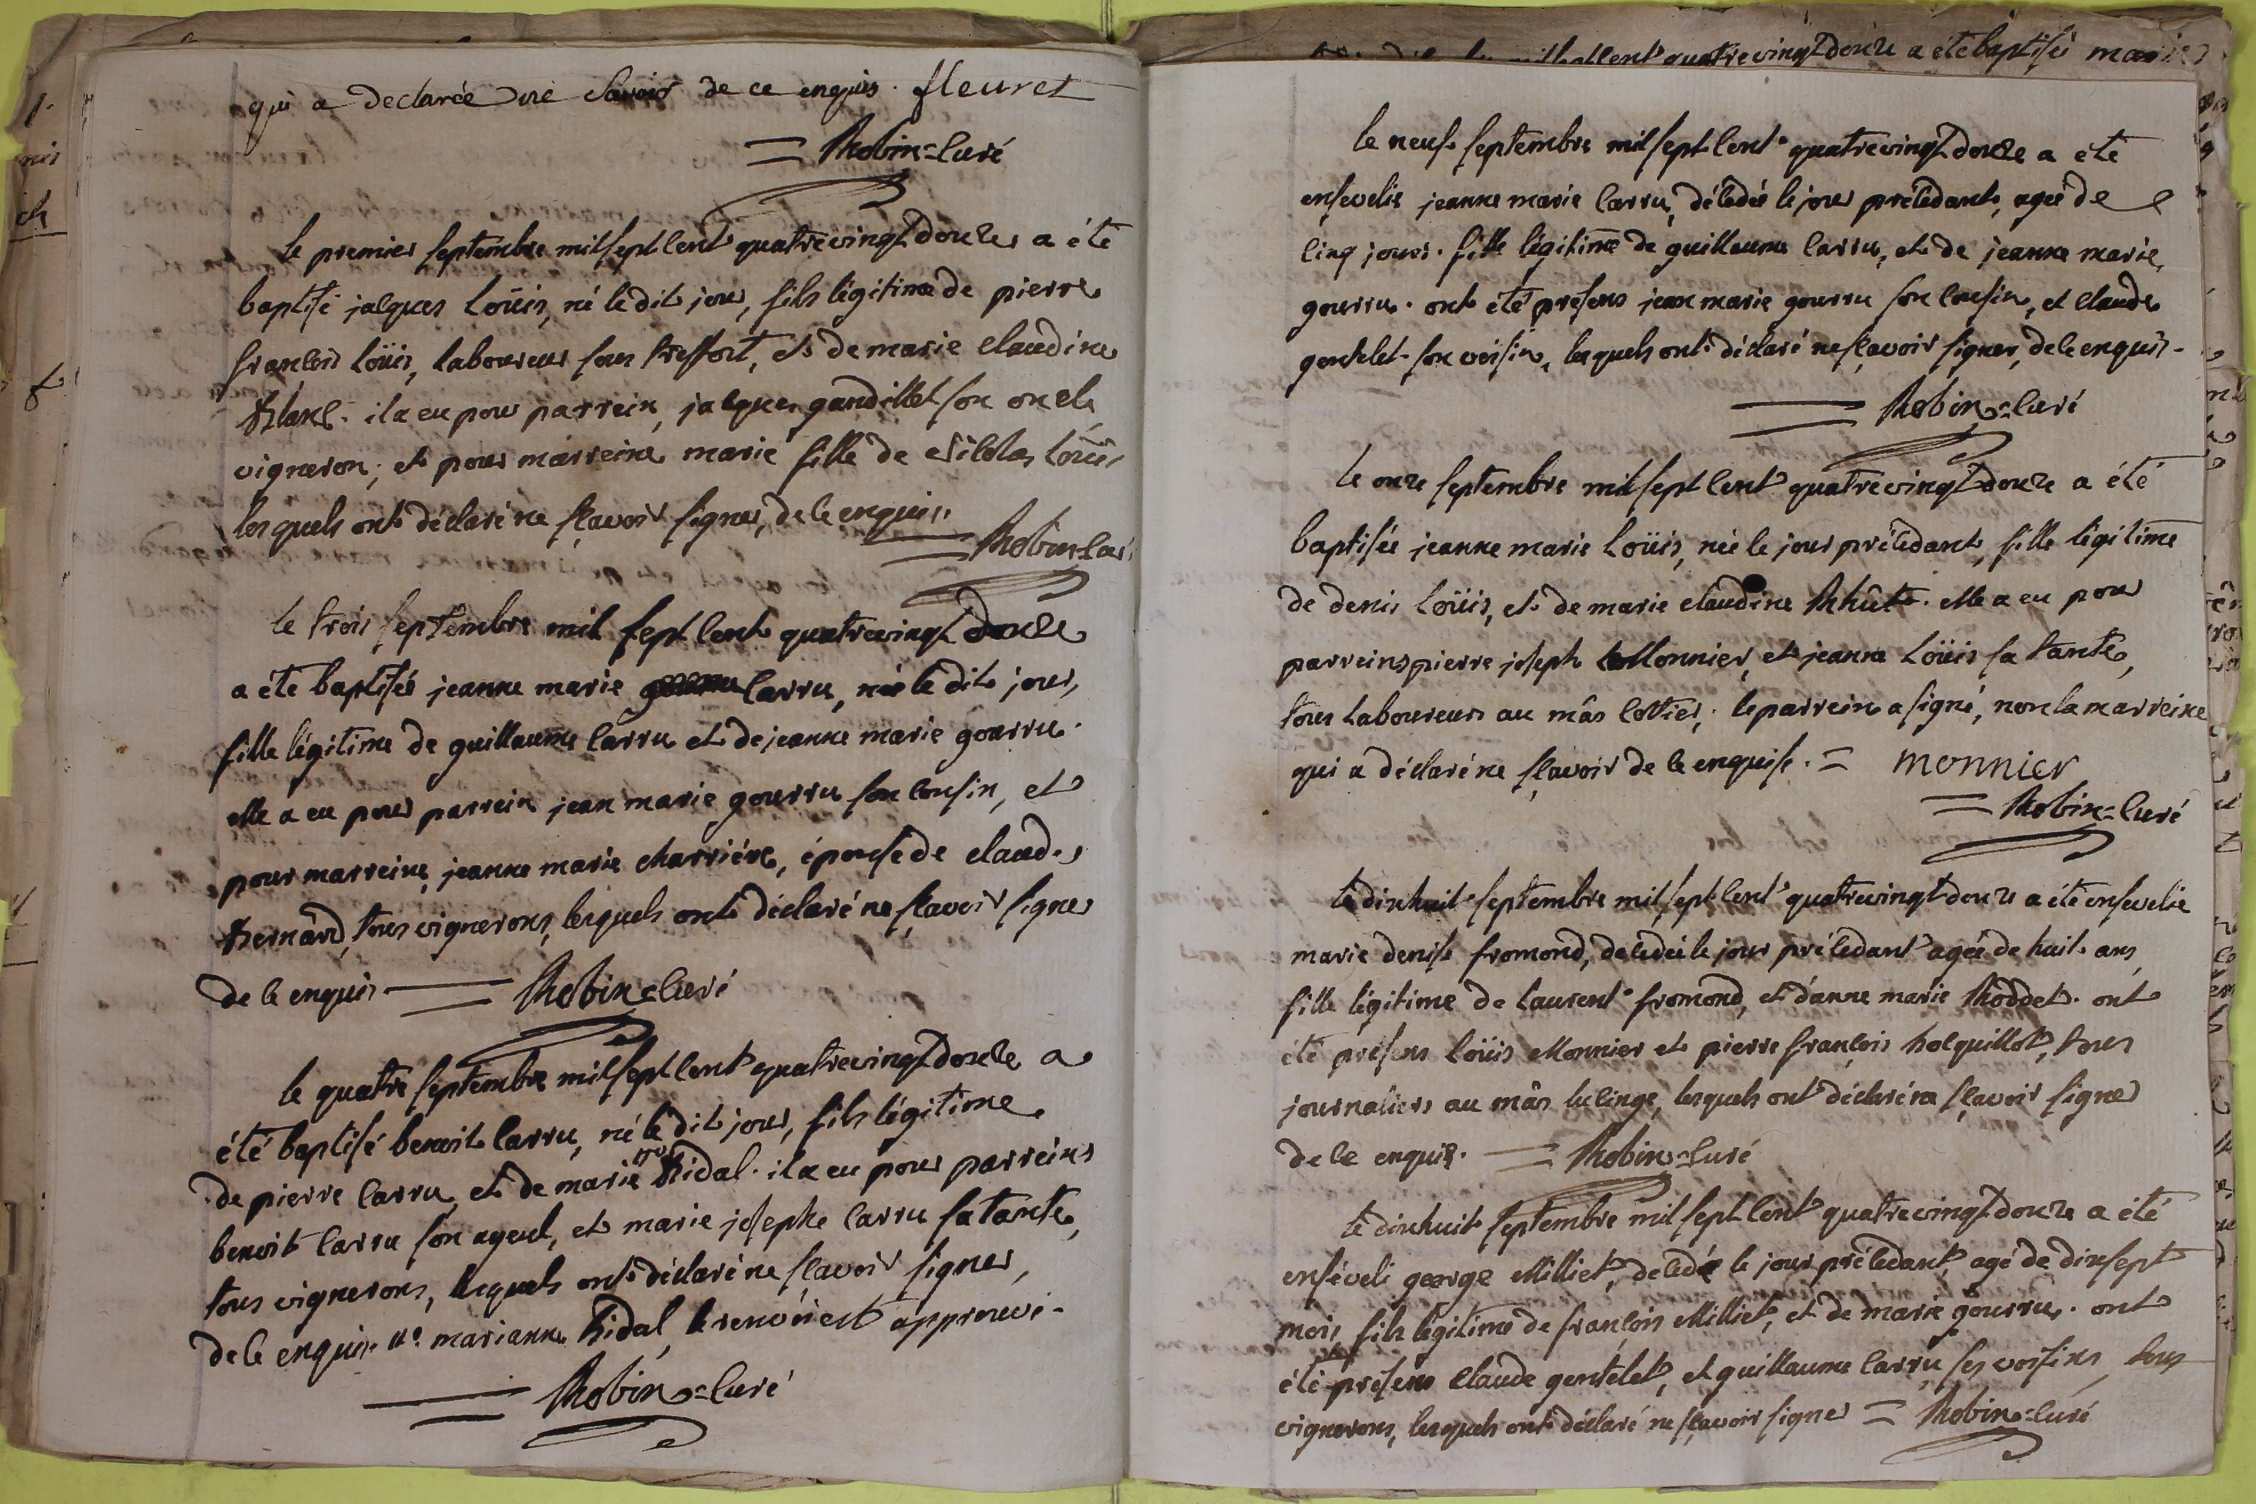 qui a declarée ne Savoir de ce enquis. fleuret
= Robin=Curé
le premier septembre mil sept cent quatrevingt douze a été
baptisé jacques Loüis, né le dit jour, fils légitime de pierre
françois Loüis, Laboureur sous treffort, et de marie claudine
Blanc. il a eu pour parrein, jacques gandillet son oncle
vigneron, et pour marreine marie fille de Nicolas Loüis
lesquels ont déclaré ne sçavoir signer, de ce enquis.
= Robin=Curé
le trois septembre mil sept cent quatrevingt douze
a été baptisée jeanne marie Carru, née le dit jour,
fille légitime de guillaume Carru et de jeanne marie gourru.
elle a eu pour parrein jean marie gourru son cousin, et
pour marreine, jeanne marie charriére, épouse de claude
Bernard, tous vignerons, lesquels ont déclaré ne sçavoir signer
de ce enquis. = Robin=Curé
le quatre septembre mil sept cent quatrevingt douze a
été baptisé benoit Carru, né le dit jour, fils légitime
de pierre Carru, et de marie Bidal. il a eu pour parreins
benoit Carru son ayeul, et marie josephe Carru sa tante,
tous vignerons, lesquels ont déclaré ne sçavoir signer,
de ce enquis. n° marianne Bidal, le renvoi est approuvé.
= Robin=Curé
le neuf septembre mil sept cent quatrevingt douze a été
ensevelie jeanne marie Carru, décédée le jour précédant, agée de
cinq jours. fille légitime de guillaume Carru, et de jeanne marie
gourru. ont été présens jean marie gourru son cousin, et claude
gentelet son voisin, lesquels ont déclaré ne sçavoir signer, de ce enquis.
= Robin=Curé
le onze septembre mil sept cent quatrevingt douze a été
baptisée jeanne marie Loüis, née le jour précédant, fille légitime
de denis Loüis, et de marie claudine . elle a eu pour
parreins pierre joseph Monnier, et jeanne Loüis sa tante,
tous Laboureurs au mâs Cottier. le parrein a signé, non la marreine
qui a déclaré ne sçavoir de ce enquise. = monnier
= Robin=Curé
le dixhuit septembre mil sept cent quatrevingt douze a été ensevelie
marie denise fromond, décédée le jour précédant agée de huit ans,
fille légitime de Laurent fromond, et d'anne marie Roddet. ont
été présens Loüis Monnier et pierre françois hocquillot, tous
journaliers au mâs lulinge, lesquels ont déclaré ne sçavoir signer
de ce enquis. = Robin=Curé
le dixhuit septembre mil sept cent quatrevingt douze a été
enséveli george Milliet, décédé le jour précédant agé de dixsept
mois, fils légitime de françois Milliet, et de marie gourru. ont
été présens Claude gentelet, et guillaume Carru ses voisins, tous
vignerons, lesquels ont déclaré ne sçavoir signer = Robin=Curé